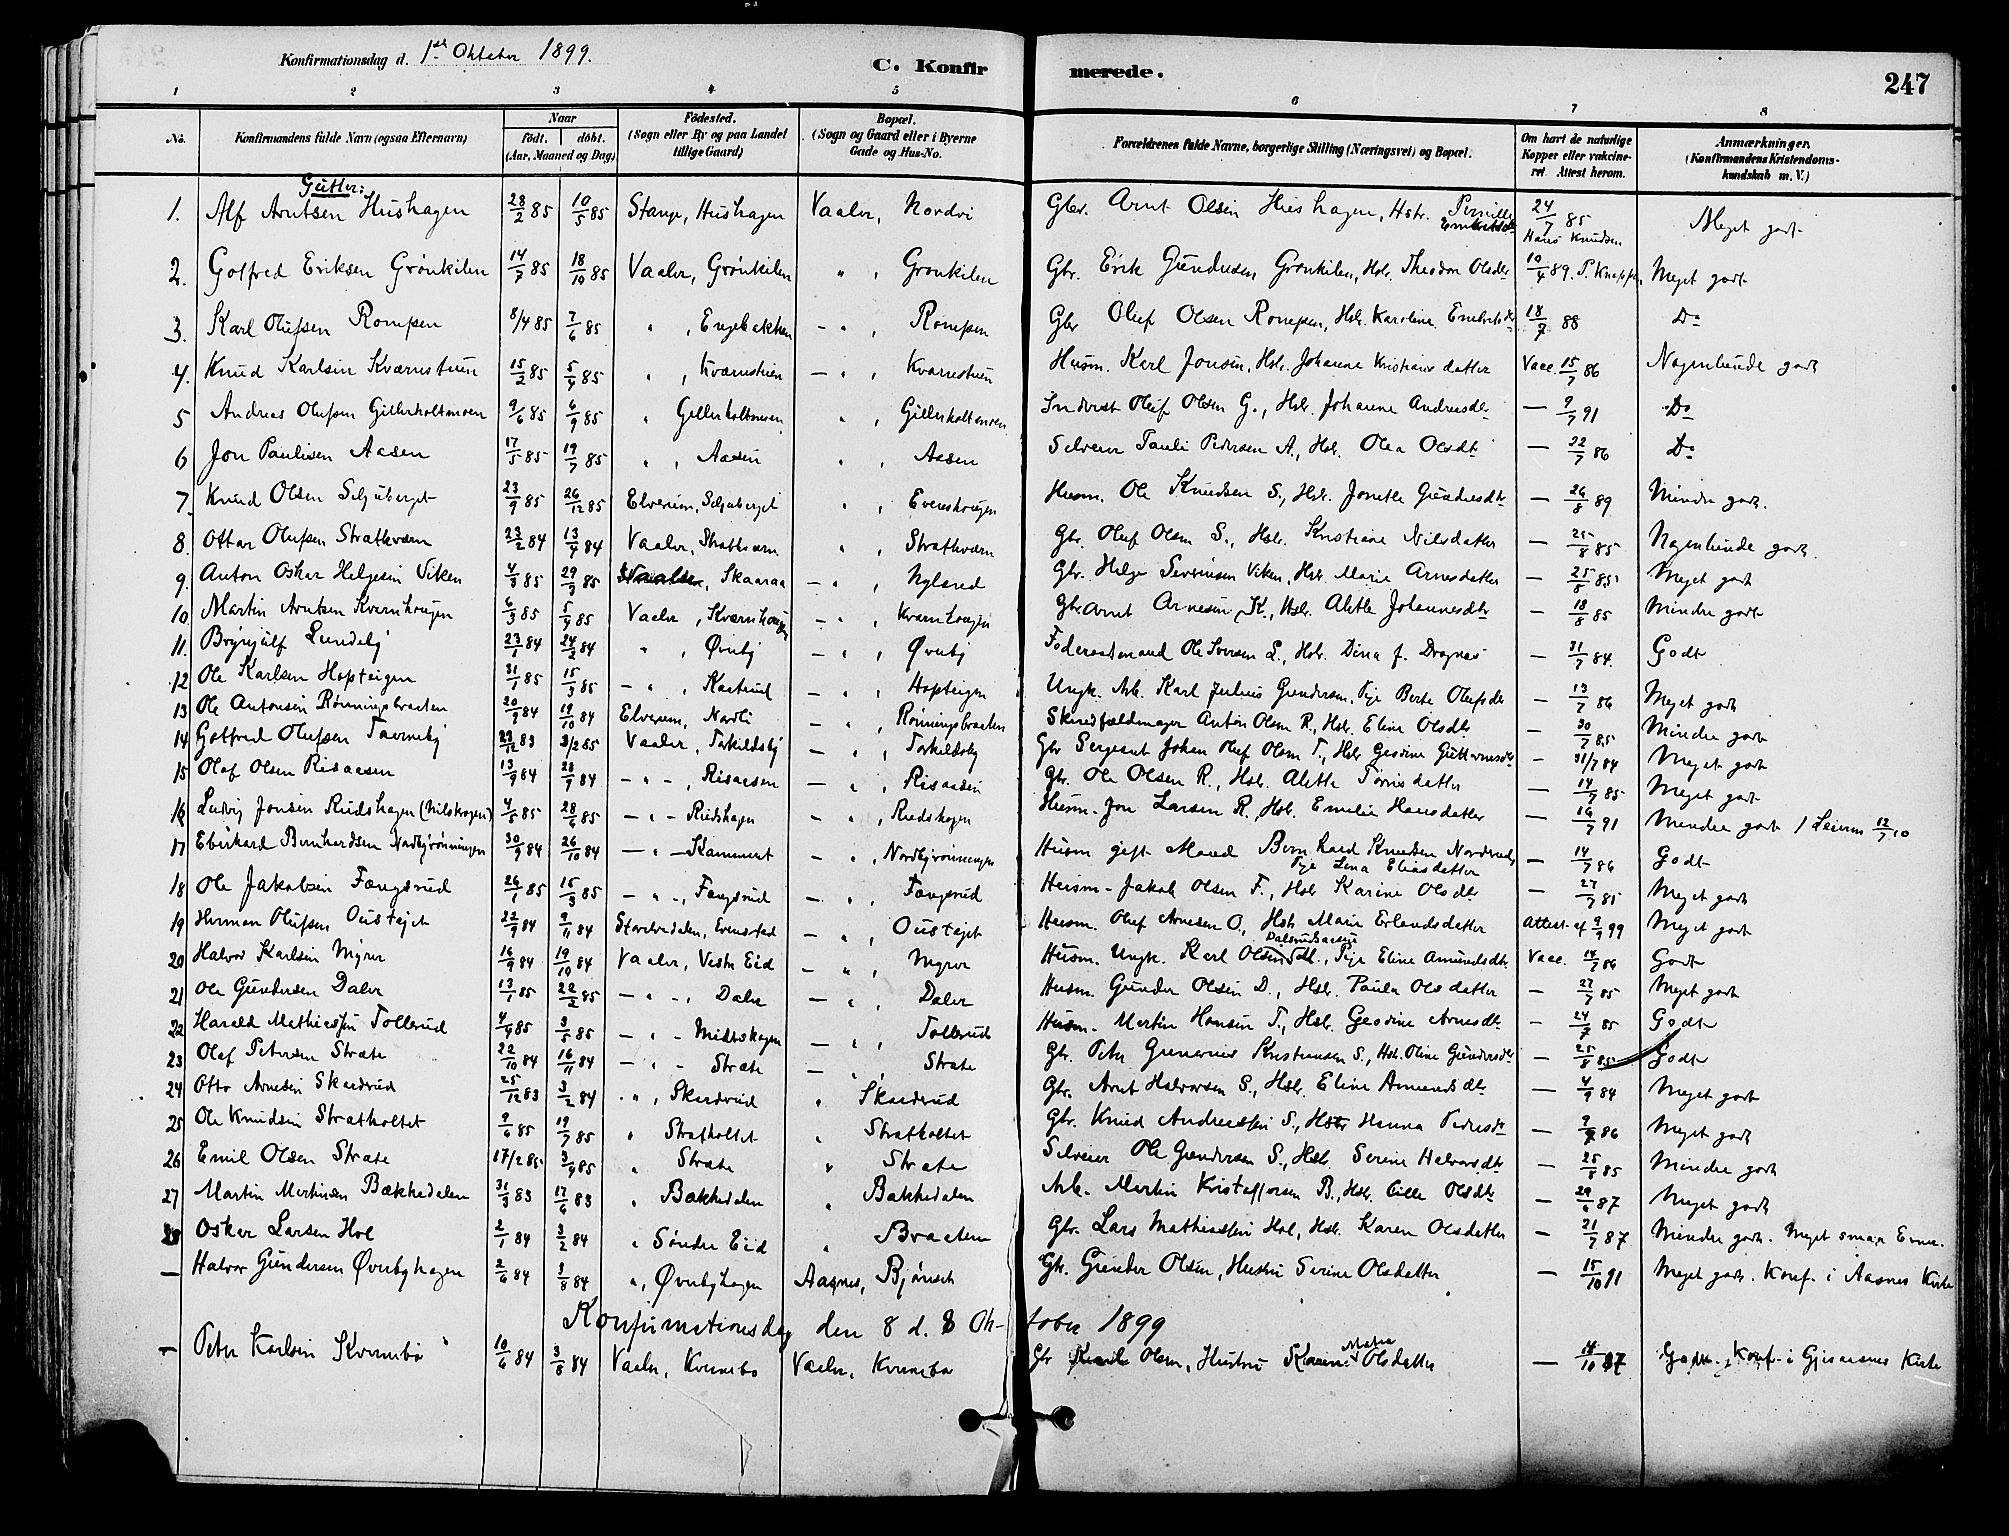 Konfirmationsdag d. 1ste Oktober 1899.
C. Konfirmerede.
247
1 2 3 4 5 6 7 8
No. Konfirmandens fulde Navn (ogsaa Efternavn) Naar födt. döbt. (Aar, Maaned og Dag) Födested. (Sogn eller By og paa Landet tillige Gaard) Bopæl. (Sogn og Gaard eller i Byerne Gade og Hus-No. Forældrenes fulde Navne, borgerlige Stilling (Næringsvei) og Bopæl. Om havt de naturlige Kopper eller vakcineret. Attest herom. Anmærkninger. (Konfirmandens Kristendomskundskab m. V.)
Gutter:
1. Alf Arntsen Hushagen 28/2 85 10/5 85 Stange, Hushagen Vaaler, Nordvi Gbr. Arnt Olsen Hushagen, Hstr. Pernille Embretsdtr 24/7 85 Hans Knudsen Meget godt
2. Golfred Eriksen Grönkilen 14/7 85 18/10 85 Vaaler, Grönkilen " , Grönkilen Gbr. Erik Gundersen Grönkilen, Hstr. Theodora Olsdtr 10/4 89. Meget godt
3. Karl Olufsen Ronepen 8/4 85 7/6 85 " , Engebakken - " , Ronepen Gbr Oluf Olsen Ronepen, Hstr. Karoline Embretsdtr 18/7 88 Do
4. Knud Karlsen Kværnstuen 15/2 85 5/4 85 " , Kværnstuen - " , Kvarnstuen Husm. Karl Jonsen, Hstr. Johanne Kristiansdatter Vacc. 15/7 86 Nogenlunde godt
5 Andreas Olufsen Gillerholtmoen 9/6 85 6/9 85 " Gillerholtmoen " , Gillerholtmoen Inderst Oluf Olsen G., Hstr. Johanne Andreasdtr - 9/7 91 Do
6 Jon Paulisen Aasen 17/5 85 19/7 85 " , Aasen " , Aasen Selveier Pauli Pedersen A., Hstr. Olea Olsdtr - 22/7 86 Do
7. Knud Olsen Seljuberget 23/9 85 26/12 85 Elverum, Seljuberget " , Evenshougen Husm. Ole Knudsen S., Hstr. Jonette Gundersdtr - 26/8 89 Mindre godt.
8. Ottar Olufsen Stratkværn 23/2 84 13/4 84 Vaaler, Stratkværn " , Stratkværn Gbr. Oluf Olsen S., Hstr. Kristiane Nilsdatter - 25/8 85 Nogenlunde godt.
9. Anton Oskar Helgesen Viken 4/3 85 29/3 85 Skaaraa - " , Nylænd Gbr. Helge Severinsen Viken, Hstr. Marie Arnesdatter - 25/8 85 Meget godt
10. Martin Arntsen Kværnhougen 6/3 85 5/4 85 Vaaler, Kværnhougen - " , Kværnhougen Gbr Arnt Arnesen K., Hstr. Alette Johannesdtr - 18/8 85 Mindre godt
11. Brynjulf Lundeby 23/1 84 24/2 84 " , Øvreby - " , Øvreby Föderaadsmand Ole Iversen L., Hstr. Dina f. Dragnes - 31/7 84. Godt
12 Ole Karlsen Hopteigen 31/1 85 15/3 85 - " , Kastrud - " , Hopteigen Ungk. Arb. Karl Julius Gundersen, Pige Berte Olufsdtr - 13/7 86 Meget godt
13 Ole Antonsen Rönningsbraaten 20/9 84 19/10 84 Elverum, Nordli - " , Rönningsbraaten Skindfældmager Anton Olsen R., Hstr. Eline Olsdtr - 30/7 85 Mindre godt
14 Gotfred Olufsen Tavrneby 29/12 83 3/2 85 Vaaler, Torkildsby - " , Torkildsby Gbr Sergeant Johan Oluf Olsen T., Hstr Gesine Guttormsdtr - 31/7 84 Meget godt
15 Olaf Olsen Risaasen 13/9 84 28/9 84 - " - , Risaasen - " , Risaasen Gbr. Ole Olsen R., Hstr. Alette Tørrisdatter - 14/7 85 Meget godt
16 Ludvig Jonsen Rudshagen (Nilskogen) 4/5 85 28/6 85 - " - Rudshagen - " , Rudshagen Husm. Jon Larsen R., Hstr. Emelie Hansdatter - 16/7 91 Mindre godt / 12/7 10
17 Eberhard Bernhardsen Nordbyrönningen 30/9 84 26/10 84 - " - Kammert - " , Nordbyrönningen Husm gift Mand Bernhard Knudsen Nordsrud, Pige Lina Eliasdatter - 14/7 86 Godt
18 Ole Jakobsen Fangsrud 26/1 85 15/3 85 - " - , Fangsrud - " , Fangsrud Husm - Jakob Olsen F., Hstr Karine Olsdtr - 27/7 85 Meget godt
19 Herman Olufsen Oustøjet 22/9 84 9/11 84 Storelvedalen, Evenstad - " , Oustøjet Husm. Oluf Arnesen O., Hstr Marie Erlandsdatter Attest af 9/9 99 Meget godt
20 Halvor Karlsen Myrer 16/9 84 19/10 84 Vaaler, Vestre Eid - " , Myrer Husm. Ungk. Karl Olsen, Pige Eline Amundsdtr. Vacc. 14/7 86 Godt
21 Ole Gundersen Daler 13/1 85 22/2 85 - " - , Daler - " , Daler Husm. Gunder Olsen D., Hstr. Paula Olsdatter - 27/7 85 Meget godt
22 Harald Mathiassen Tollerud 4/4 85 3/5 85 - " - Midtskogen - " , Tollerud Husm. Martin Hansen T., Hstr. Gesine Arnesdtr - 24/7 85 Godt
23 Olaf Petersen Stræte 22/10 84 16/11 84 - " - Stræte - " , Stræte Gbr. Peter Gunerius Kristiansen S., Hstr. Oline Gundersdtr - 25/8 85 Godt
24 Otto Arnesen Skarderud 25/12 83 3/2 84 - " , Skarderud " Skarderud Gbr. Arnt Halvorsen S., Hstr. Eline Amundsdtr - 4/9 84 Meget godt
25 Ole Knudsen Stratholtet 9/6 85 19/7 85 " Stratholtet " Stratholtet Gbr. Knud Andreassen S., Hstr Hanna Pedersdtr - 9/7 86 Meget godt
26 Emil Olsen Stræte 17/2 85 3/4 85 " Stræte " Stræte Selveier Ole Gundersen S., Hstr. Serine Halvorsdtr - 25/8 85 Mindre godt
27 Martin Martinsen Bækkedalen 31/3 83 17/6 83 " Bakkedalen " Bakkedalen Arb. Martin Kristoffersen B., Hstr. Cille Olsdtr - 29/6 87 Meget godt
28 Oskar Larsen Hol 2/1 84 3/2 84 " Søndre Eid " Braaten Gbr. Lars Mathiassen Hol, Hstr. Karen Olsdatter - 21/7 87 Mindre godt. Meget smaa Evner.
- Halvor Gundersen Øvrebyhagen 2/6 84 3/8 84 " , Øvrebyhagen Aasnes, Bjørset Gbr. Gunder Olsen, Hustru Serine Olsdatter - 15/10 91 Meget godt. Konf. i Aasnes Kirke
Konfirmationsdag den 8 d. 8 Oktober 1899
- Peter Karlsen Kvernebo 10/6 84 3/8 84 Vaaler, Kvernebo Vaaler, Kvernebo Gbr Olsen, Hustru Olsdatter - 14/10 87 Godt. Konf. i Gjesaasens Kirke